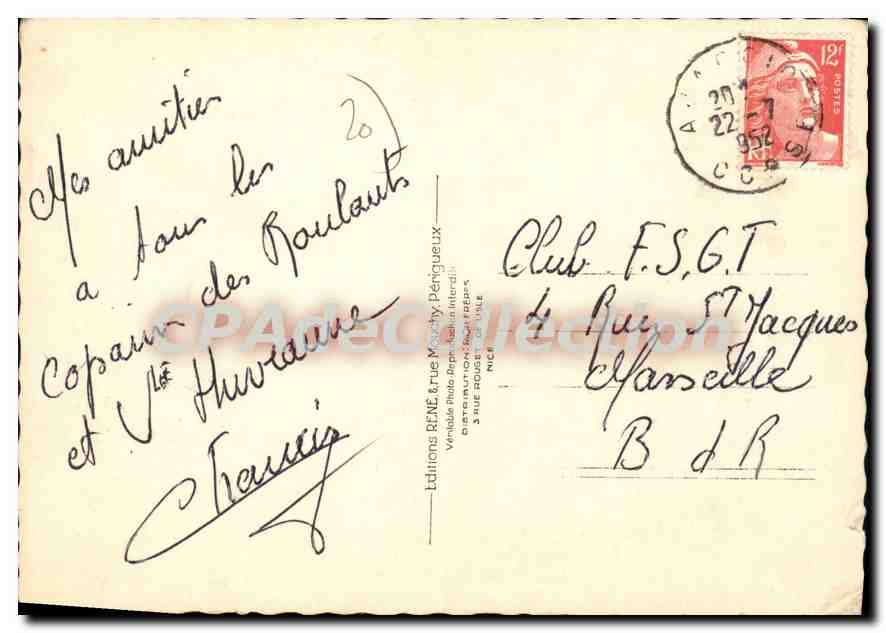 Mes amitiés
a tous les
copains des Roulants
et Vlle Huveaune
Francis
20
Editions RENÉ, 8, rue Mouchy, Périgueux
Véritable Photo-Reproduction Interdite
DISTRIBUTION: RICH FRÈRES
3 RUE ROUGET DE L'ISLE
NICE
12F
POSTES
20
22-7
1952
Club F.S.G.T
4 Rue St Jacques
Marseille
B d R
CPAdeCollection